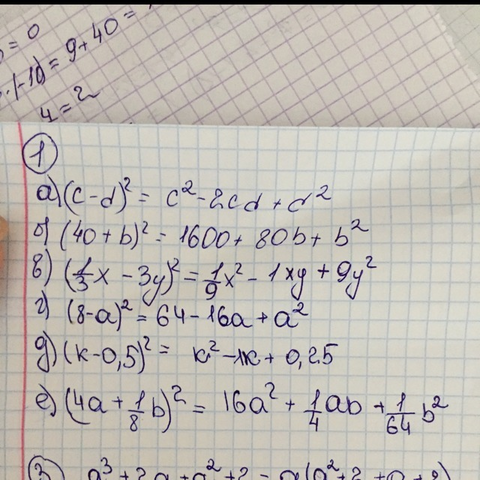 = 0
·(-10) = 9 + 40 =
4 = 2
1
а) (c-d)² = c² - 2cd + d²
б) (40+b)² = 1600 + 80b + b²
в) (1/3x - 3y)² = 1/9x² - 1xy + 9y²
г) (8-a)² = 64 - 16a + a²
д) (к-0,5)² = к² - 1к + 0,25
е) (4a + 1/8b)² = 16a² + 1/4ab + 1/64b²
3 a³ + 2a + a² + 2 = a(a² + 2